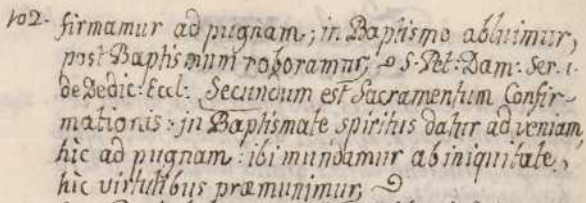 102. firmamur ad pugnam; in Baptismo abluimur,
post Baptismum roboramur; S. Pet: Dam: Ser. 1.
de Dedic: Eccl: Secundum est Sacramentum Confir-
mationis: in Baptismate spiritus datur ad veniam,
hic ad pugnam: ibi mundamur ab iniquitate,
hic virtutibus præmunimur,